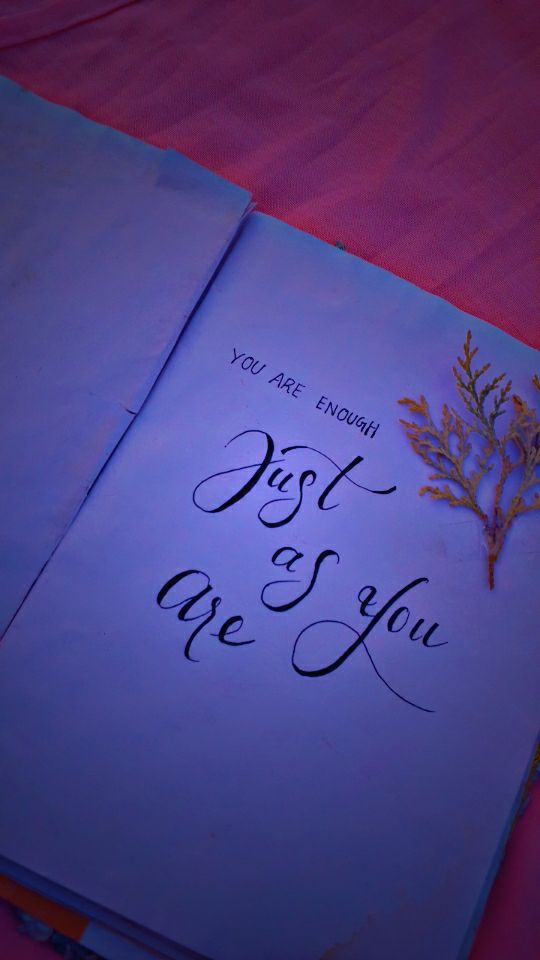 YOU ARE ENOUGH
Just
as you
are